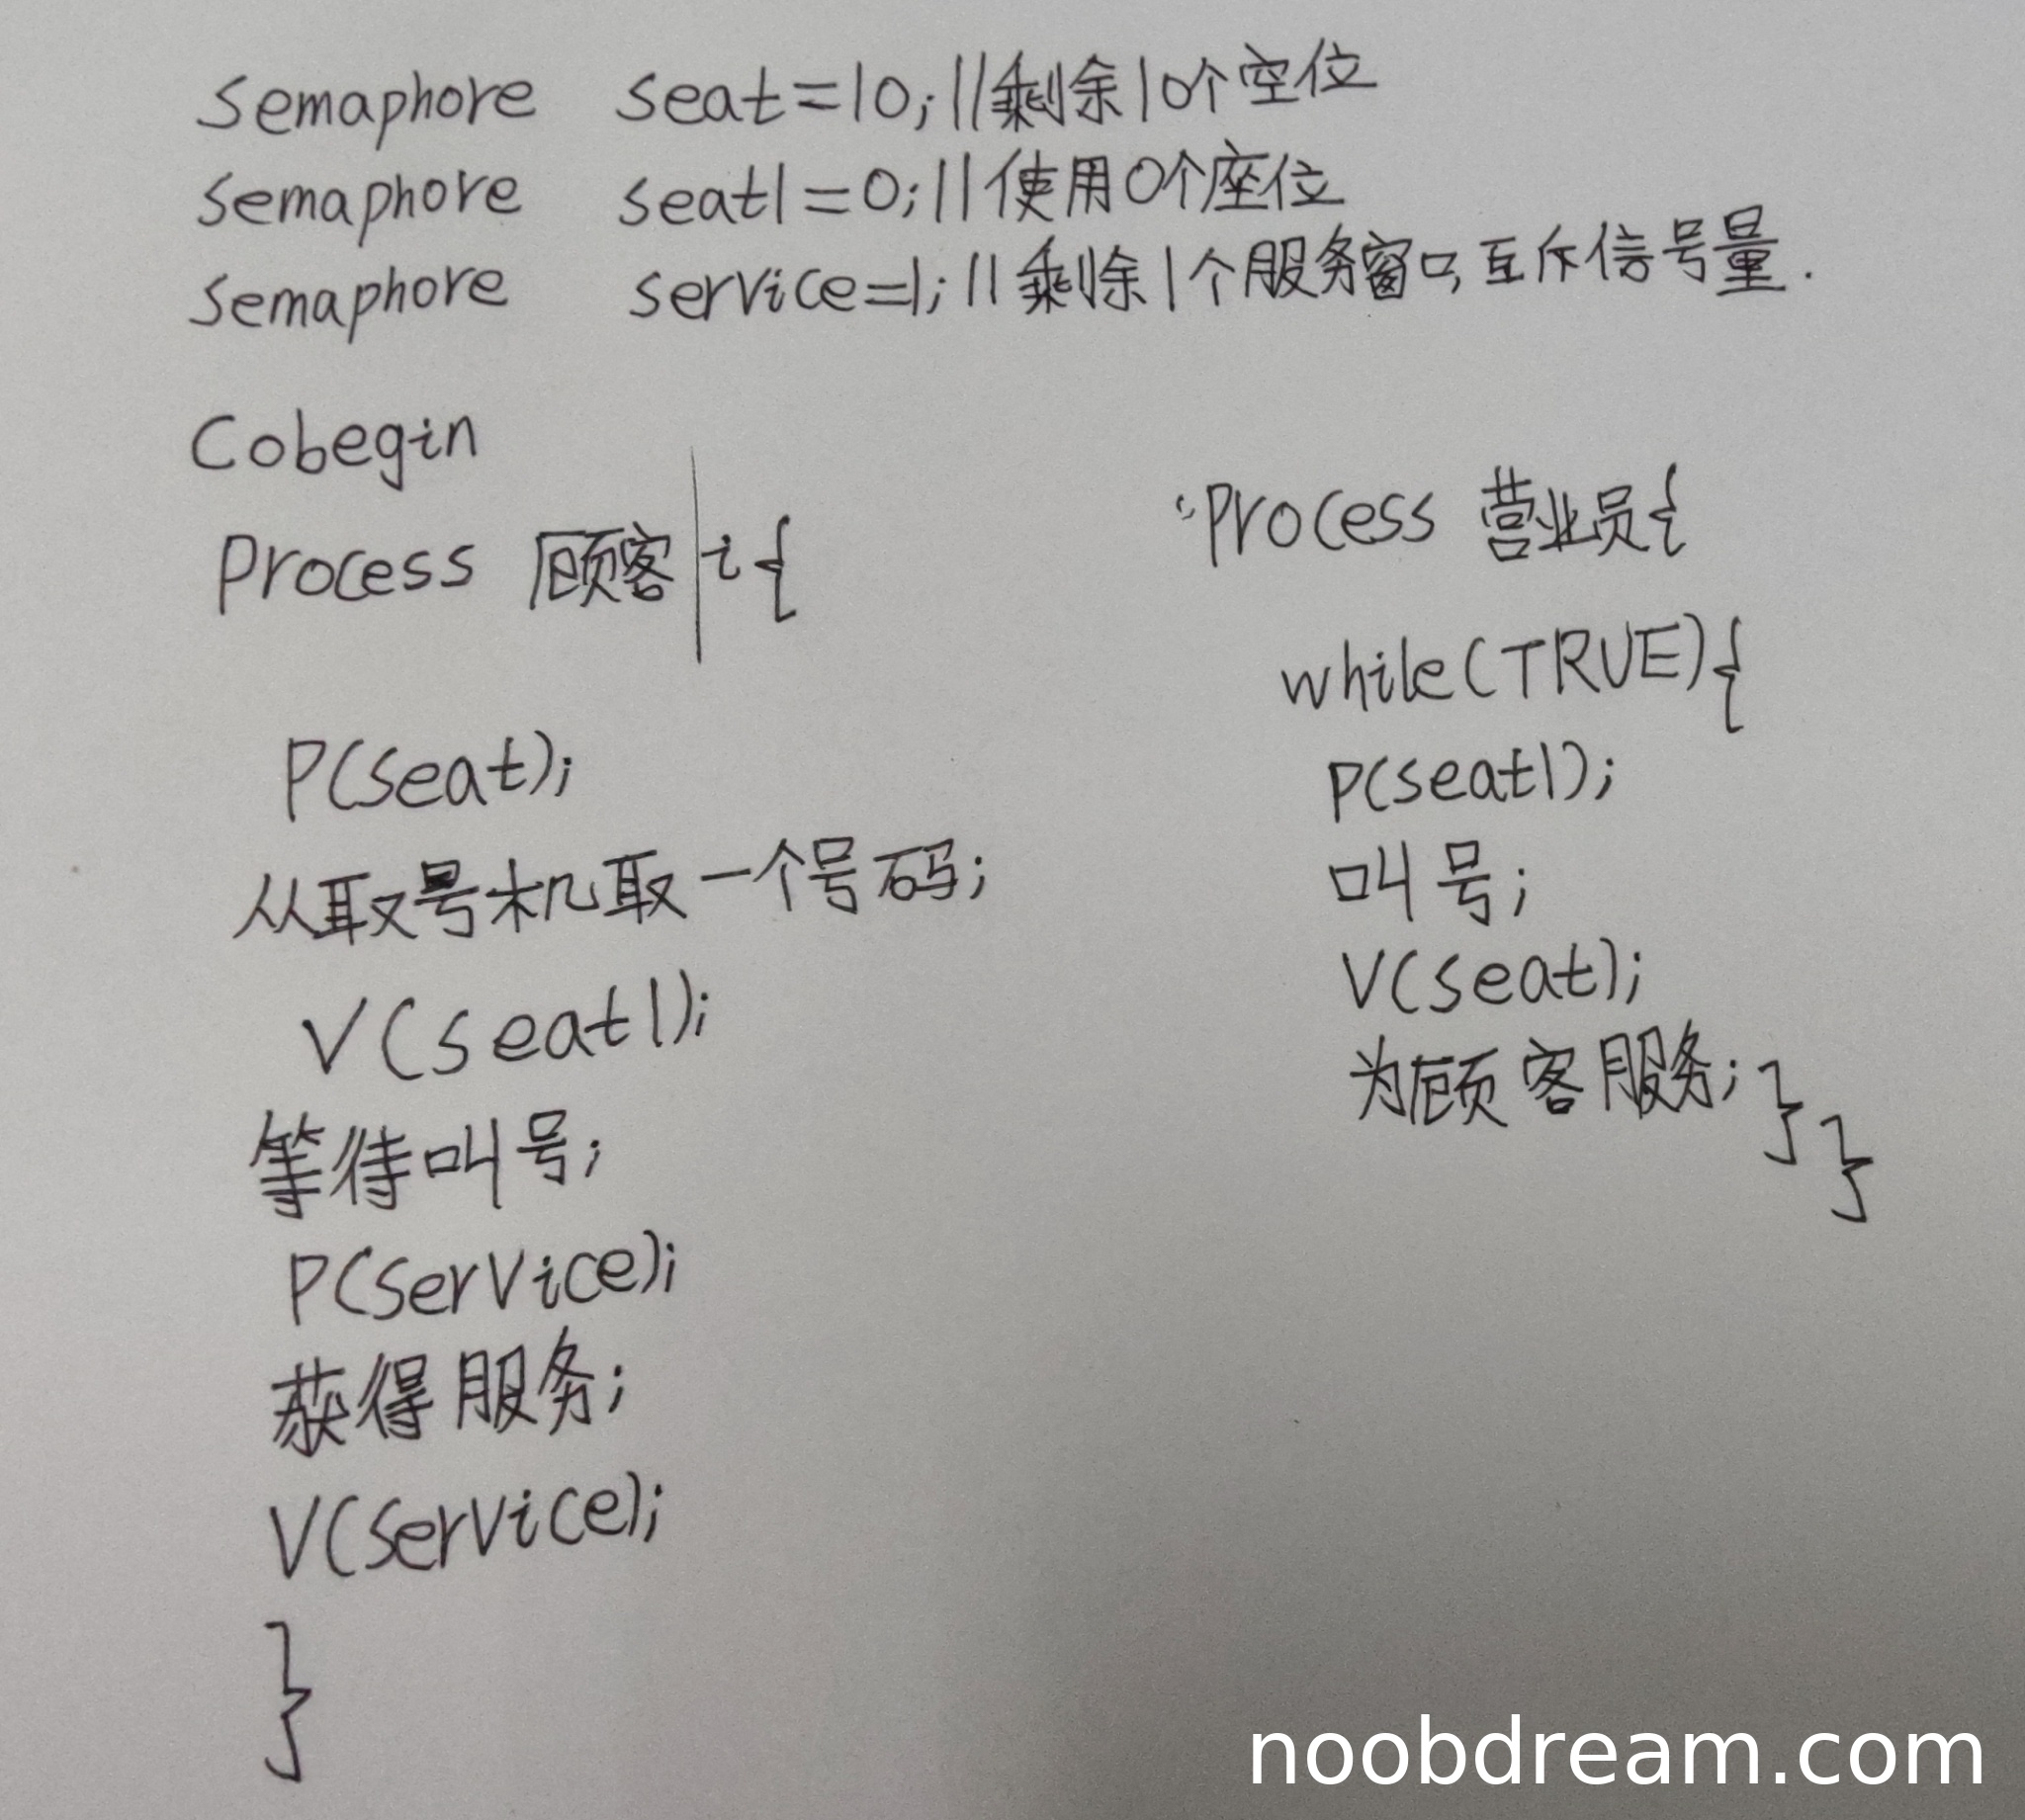 Semaphore seat=10;//剩余10个空位
Semaphore seat1=0;//使用0个座位
Semaphore service=1;//剩余1个服务窗口,互斥信号量.
Cobegin
Process 顾客 i{
P(seat);
从取号机取一个号码;
V(seat1);
等待叫号;
P(service);
获得服务;
V(service);
}
Process 营业员{
while(TRUE){
P(seat1);
叫号;
V(seat);
为顾客服务;}
}
noobdream.com